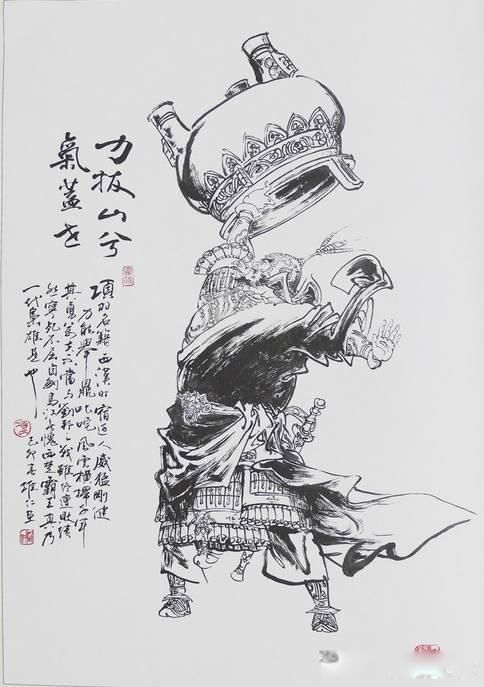 力拔山兮
氣蓋世
項羽名籍西漢時宿遷人威猛剛健
力能舉鼎叱咤風雲橫掃千軍
其勇萬夫不當与劉邦之戰雖終遭敗績
然寧死不屈自刎烏江無愧西楚霸王真乃
一代梟雄是也
己卯 雄仁